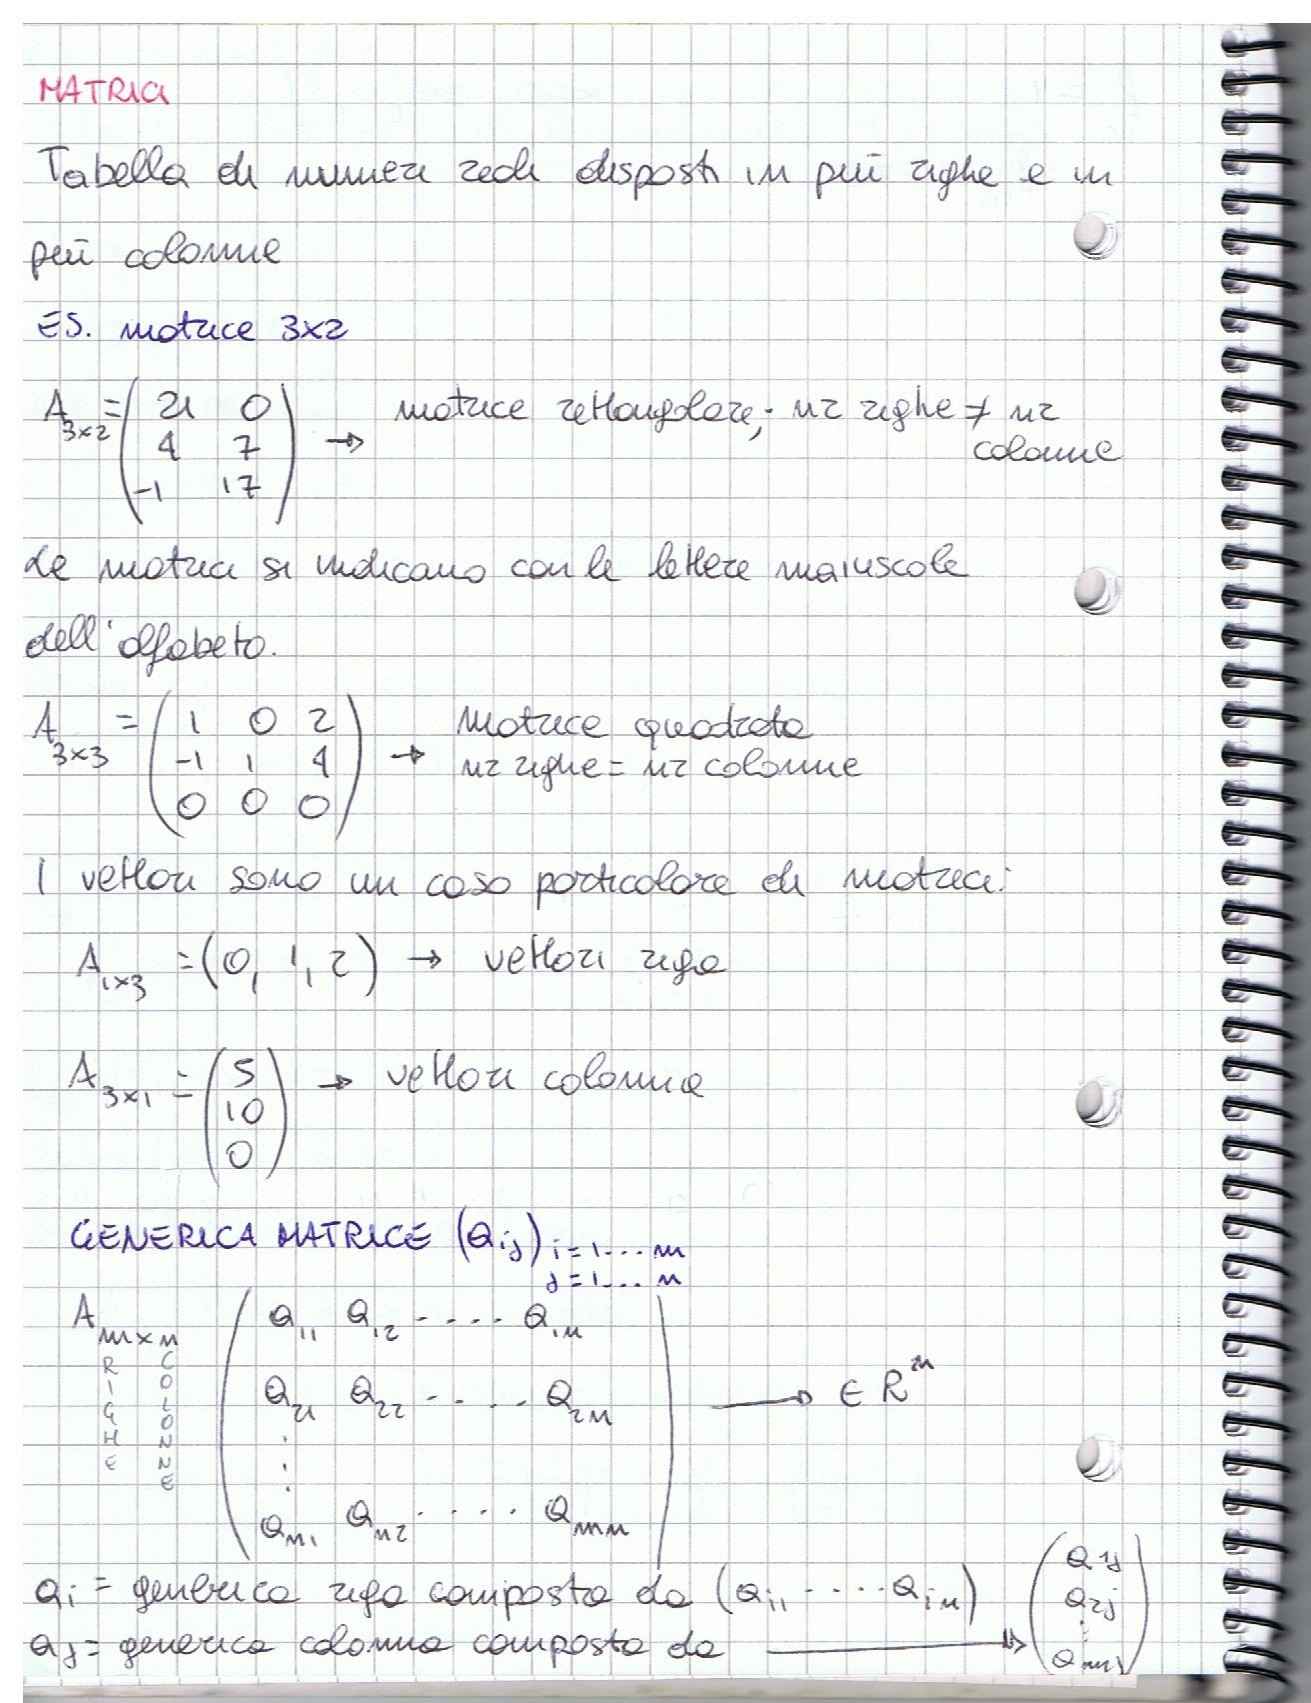 MATRICI
Tabella di numeri reali disposti in più righe e in
più colonne
ES. matrice 3x2
A 3x2 = ( 21 0 → matrice rettangolare; nr righe ≠ nr
4 7 colonne
-1 17 )
Le matrici si indicano con le lettere maiuscole
dell'alfabeto.
A 3x3 = ( 1 0 2 matrice quadrata
-1 1 4 → nr righe = nr colonne
0 0 0 )
I vettori sono un caso particolare di matrici:
A 1x3 = (0, 1, 2) → vettori riga
A 3x1 = ( 5 → vettori colonna
10
0 )
GENERICA MATRICE (aij) i = 1... m
j = 1... n
A mxn ( a11 a12 ..... a1n
RIGHE COLONNE
a21 a22 ..... a2n → ∈ R^m
:
:
an1 an2 ..... amn )
ai = generica riga composta da (ai1 ..... ain)
aj = generica colonna composta da → ( a1j
a2j
:
amj )